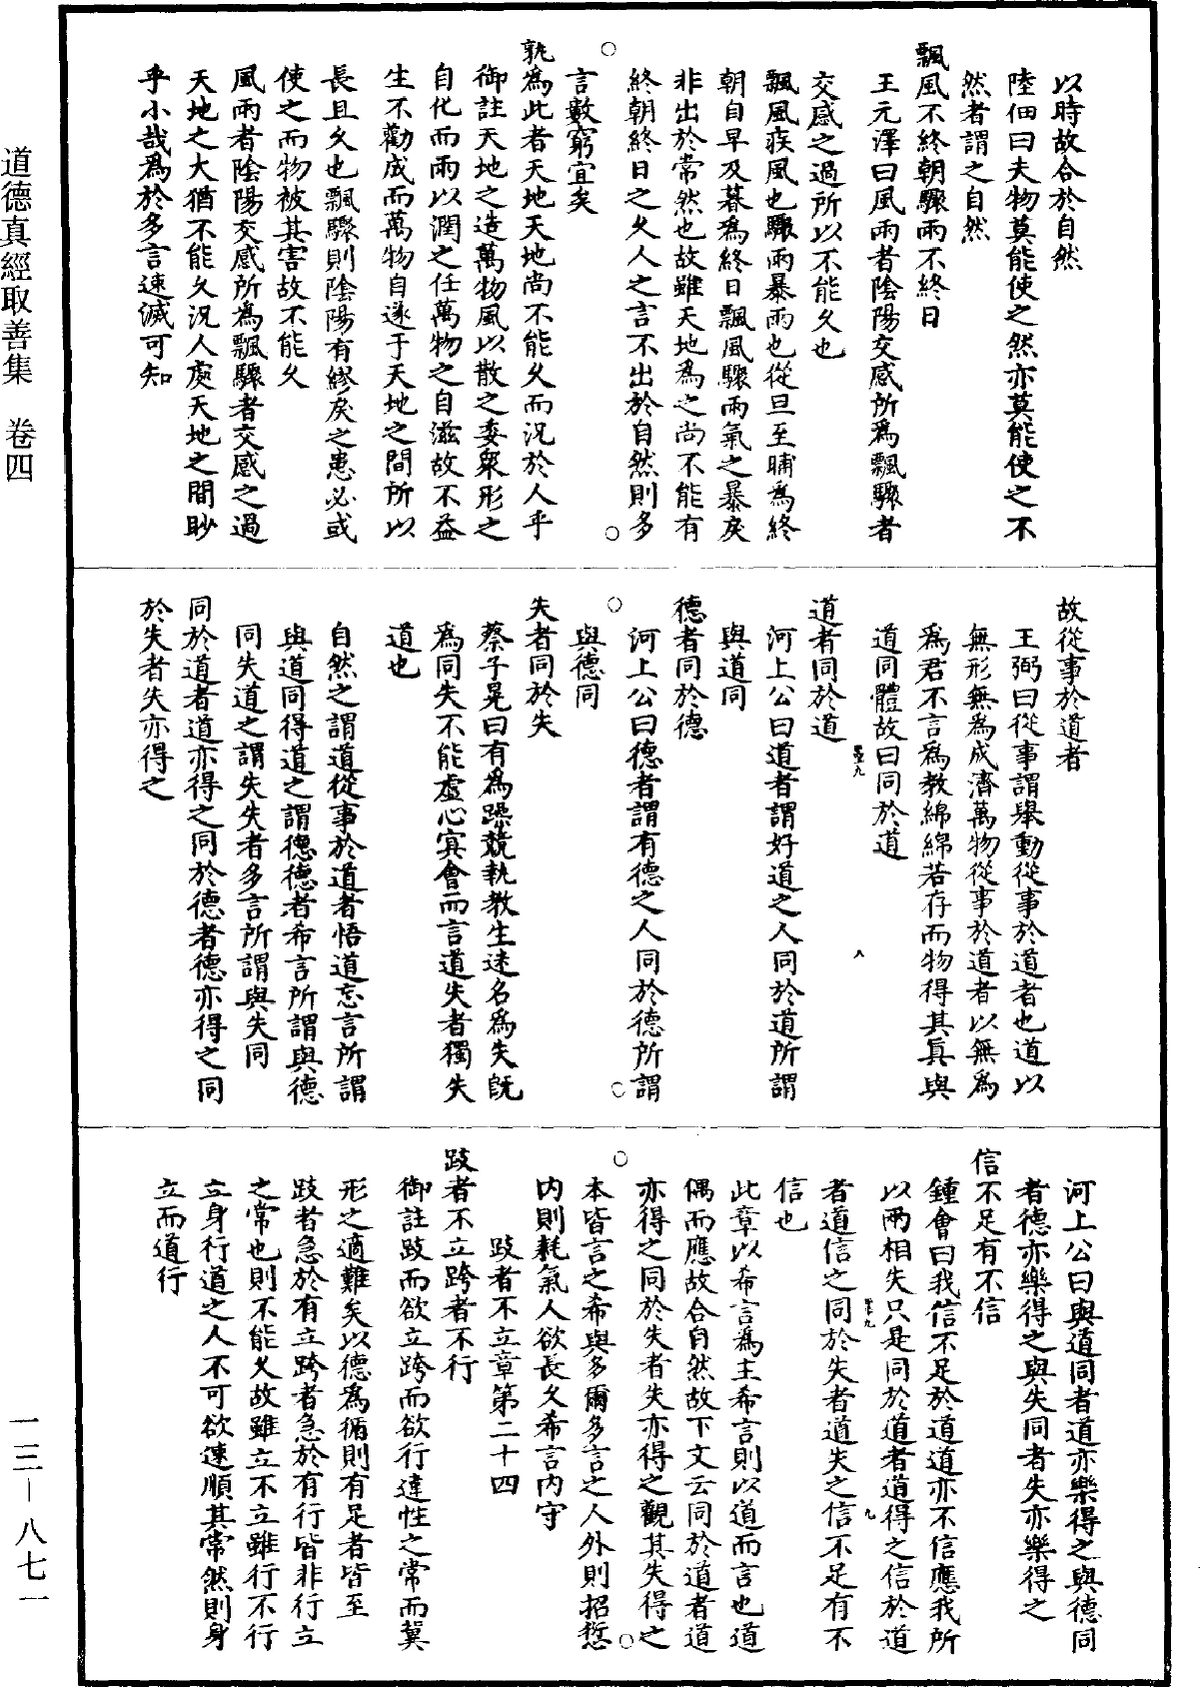 以時故合於自然
陸佃曰夫物莫能使之然亦莫能使之不
然者謂之自然
飄風不終朝驟雨不終日
王元澤曰風雨者陰陽交感所爲飄驟者
交感之過所以不能久也
飄風疾風也驟雨暴雨也從旦至晡爲終
朝自早及暮爲終日飄風驟雨氣之暴戾
非出於常然也故雖天地爲之尚不能有
終朝終日之久人之言不出於自然則多
言數窮宜矣
孰爲此者天地天地尚不能久而況於人乎
御註天地之造萬物風以散之委衆形之
自化而雨以潤之任萬物之自滋故不益
生不勸成而萬物自遂于天地之間所以
長且久也飄驟則陰陽有繆戾之患必或
使之而物被其害故不能久
風雨者陰陽交感所爲飄驟者交感之過
天地之大猶不能久況人處天地之間眇
乎小哉爲於多言速滅可知
故從事於道者
王弼曰從事謂舉動從事於道者也道以
無形無爲成濟萬物從事於道者以無爲
爲君不言爲教綿綿若存而物得其真與
道同體故曰同於道
道者同於道
河上公曰道者謂好道之人同於道所謂
與道同
德者同於德
河上公曰德者謂有德之人同於德所謂
與德同
失者同於失
蔡子晃曰有爲躁競執教生迷名爲失既
爲同失不能虛心冥會而言道失者獨失
道也
自然之謂道從事於道者悟道忘言所謂
與道同得道之謂德德者希言所謂與德
同失道之謂失失者多言所謂與失同
同於道者道亦得之同於德者德亦得之同
於失者失亦得之
河上公曰與道同者道亦樂得之與德同
者德亦樂得之與失同者失亦樂得之
信不足有不信
鍾會曰我信不足於道道亦不信應我所
以兩相失只是同於道者道得之信於道
者道信之同於失者道失之信不足有不
信也
此章以希言爲主希言則以道而言也道
偶而應故合自然故下文云同於道者道
亦得之同於失者失亦得之觀其失得之
本皆言之希與多爾多言之人外則招愆
內則耗氣人欲長久希言內守
跂者不立章第二十四
跂者不立跨者不行
御註跂而欲立跨而欲行違性之常而冀
形之適難矣以德爲循則有足者皆至
跂者急於有立跨者急於有行皆非行立
之常也則不能久故雖立不立雖行不行
立身行道之人不可欲速順其常然則身
立而道行
道德真經取善集　卷四
一三－八七一